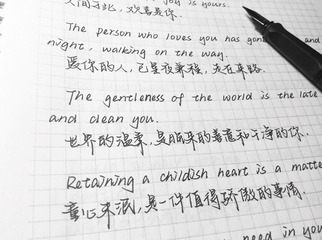 joy is yours.
人间才北，欢喜是你．
The person who loves you has gon and
night, walking on the way.
爱你的人，已星夜兼程，走在来路．
The gentleness of the world is the late
and clean you.
世界的温柔，是晚来的善意和干净的你．
Retaining a childish heart is a matte
童心未泯，是一件值得骄傲的事情．
need in you